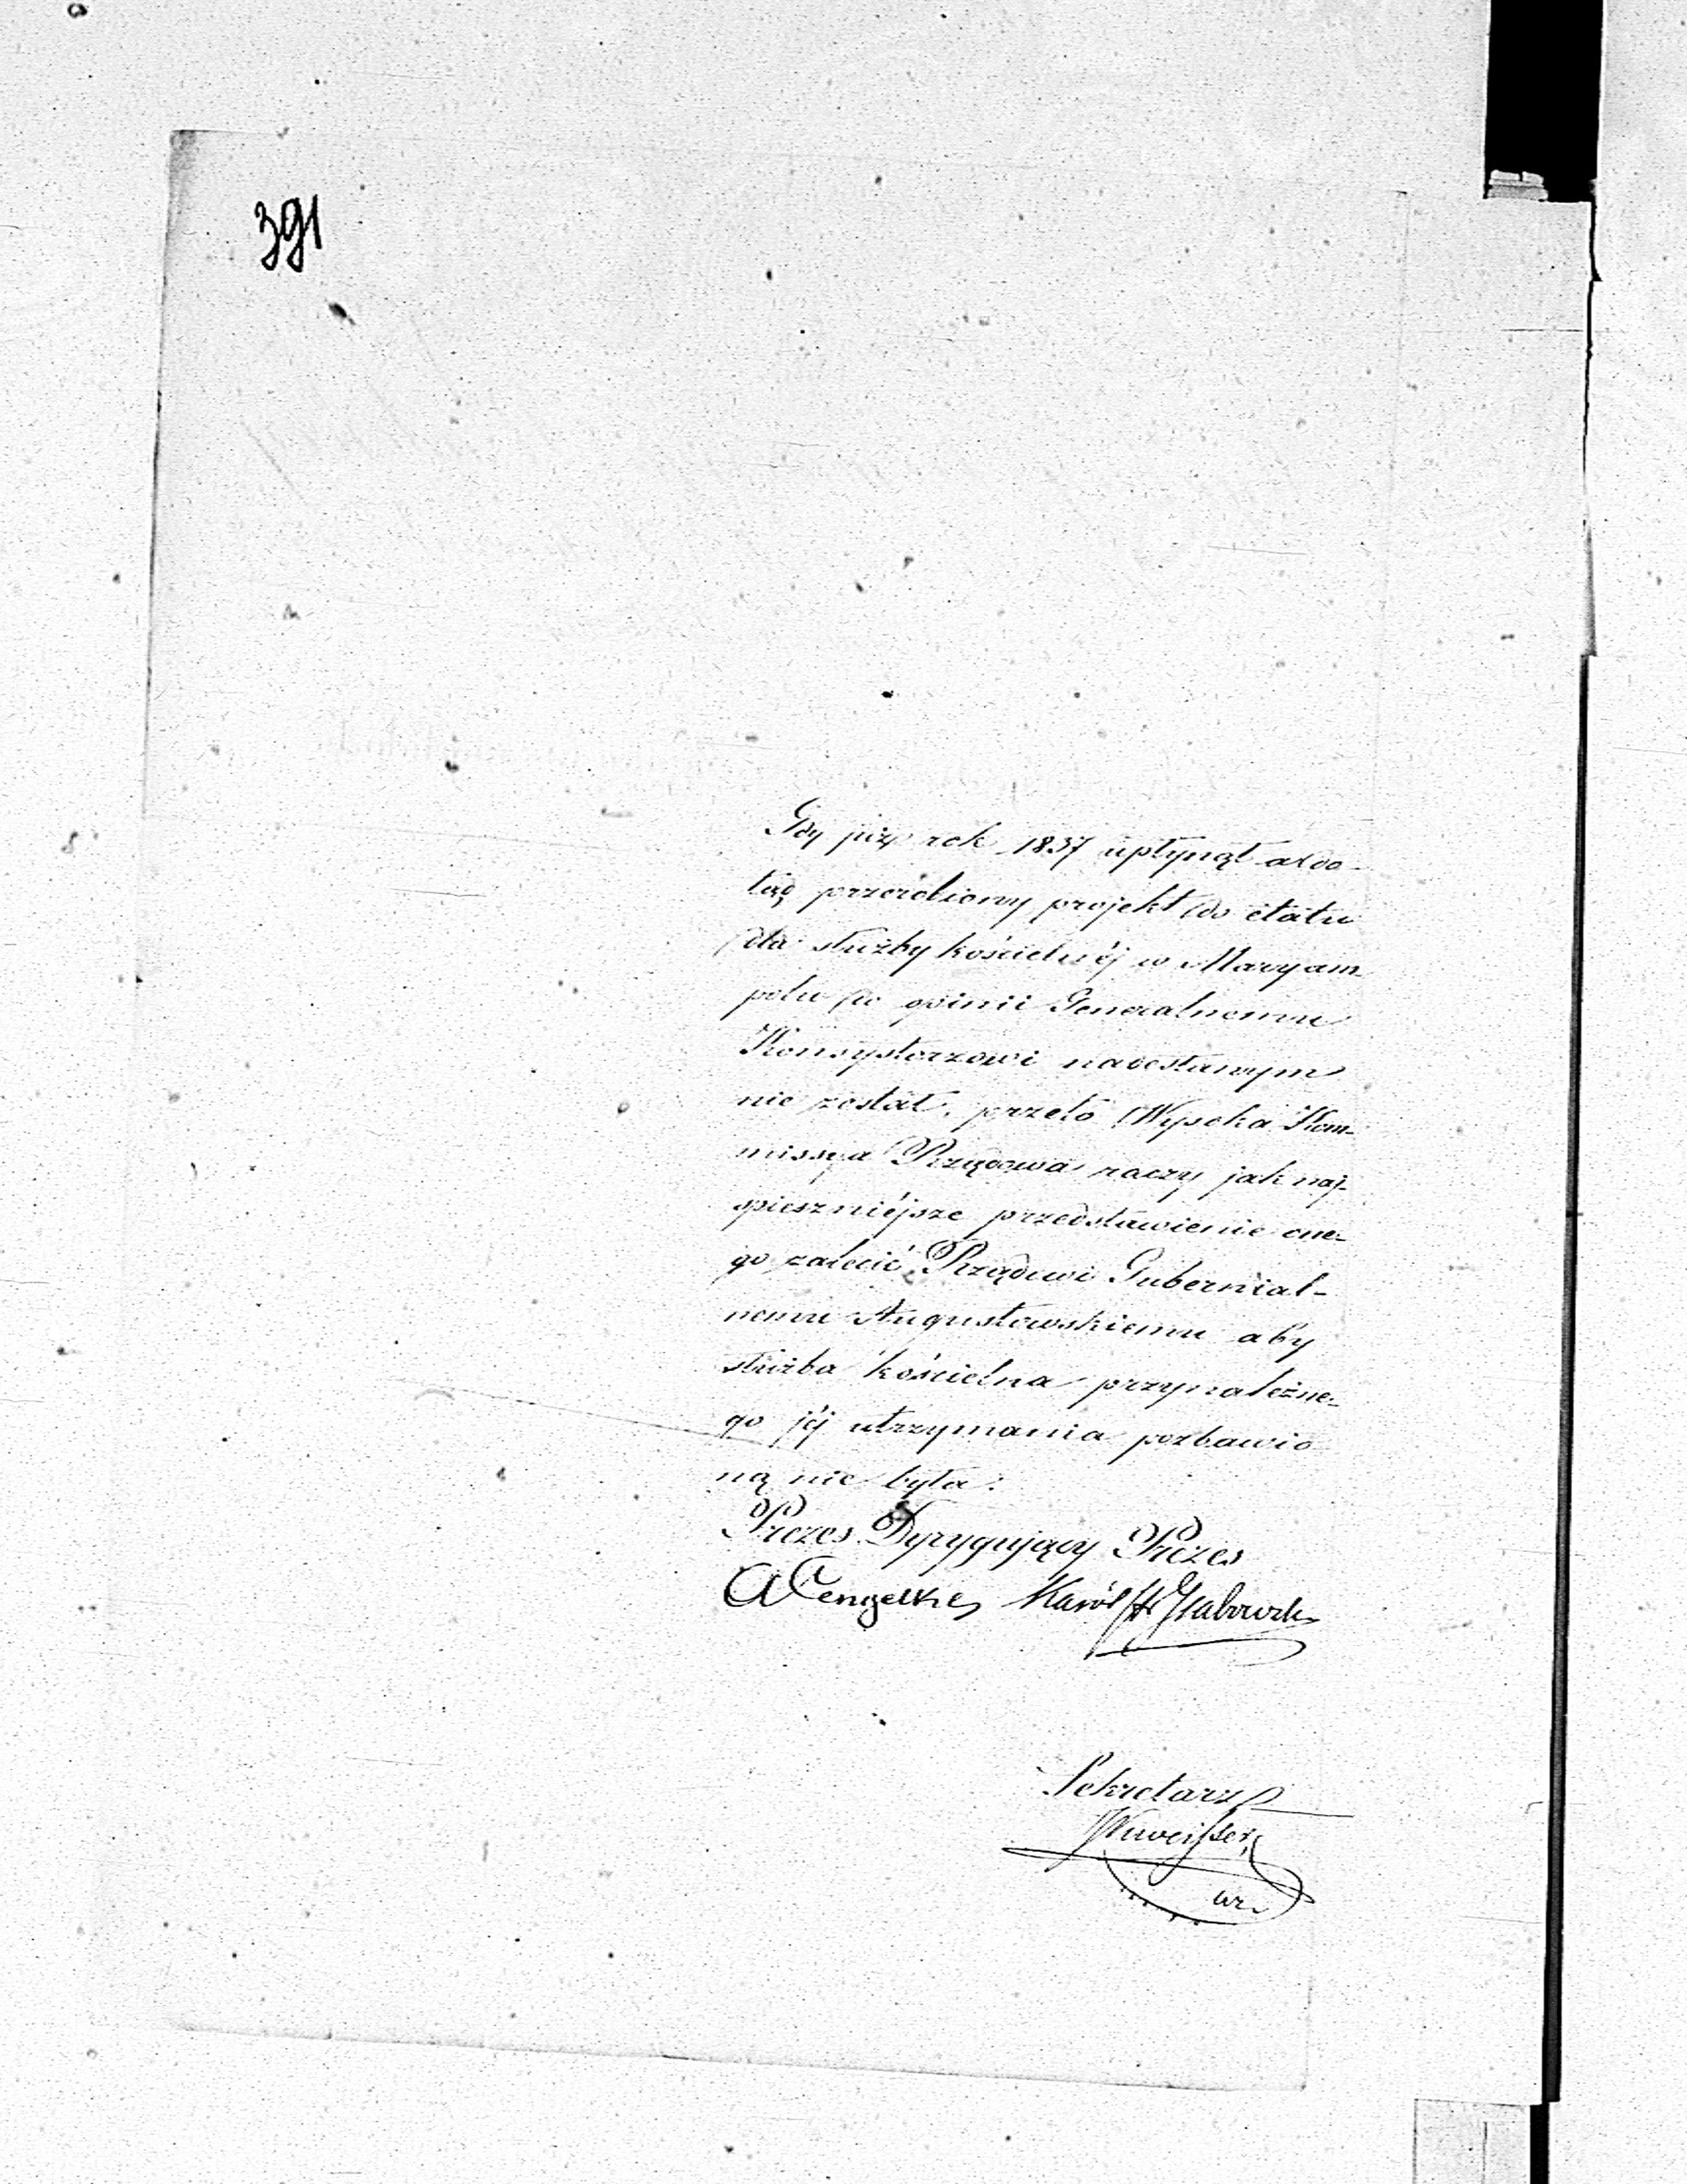 391
Gdy już rok 1837 upłynął a do-
tąd przerobiony projekt do etatu
dla służby kościelnéj w Maryam-
polu do opinii Generalnemu
Konsystorzowi nadesłanym
nie został, przeto Wysoka Kom-
missya Rządowa raczy jak naj-
spieszniéjsze przedstawienie one-
go zalecić Rządowi Gubernial-
nemu Augustowskiemu aby
służba kościelna przynależne-
go jéj utrzymania pozbawio
ną nie była.
Prezes Dyrygujący Prezes
Karól
Sekretarz